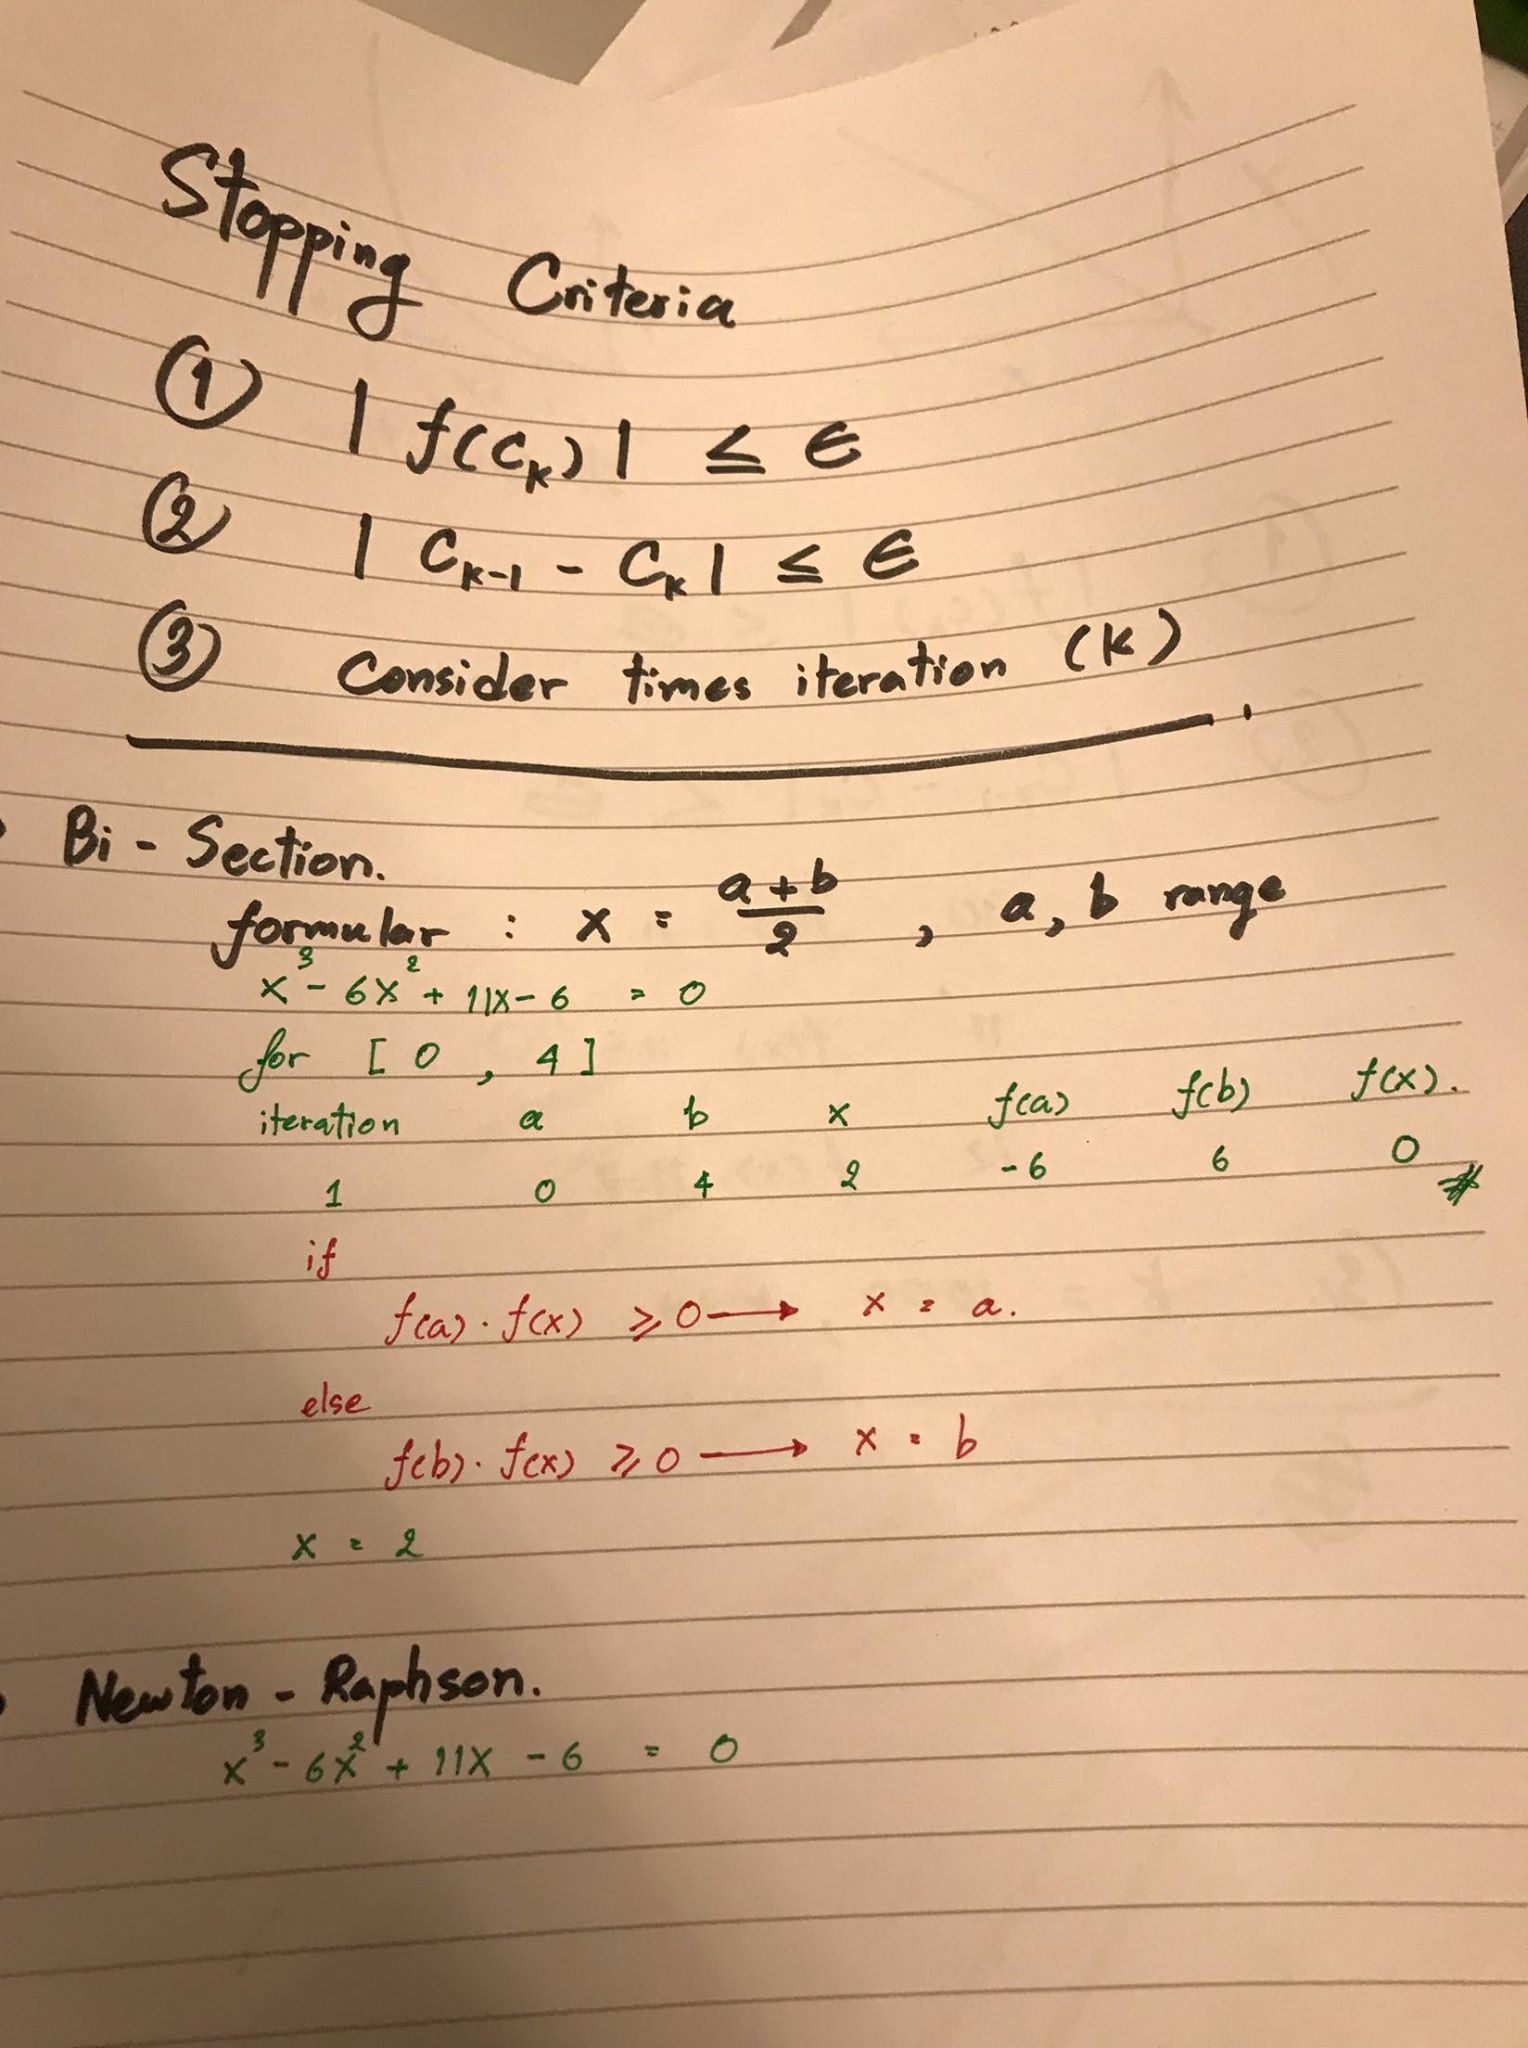 Stopping Criteria
① | f(C_k) | ≤ ∈
② | C_{k-1} - C_k | ≤ ∈
③ Consider times iteration (k)
Bi - Section.
formular : x = (a + b)/2 , a, b range
x³ - 6x² + 11x - 6 = 0
for [ 0 , 4 ]
iteration a b x f(a) f(b) f(x).
1 0 4 2 -6 6 0 #
if
f(a) · f(x) ⩾ 0 → x = a.
else
f(b) · f(x) ⩾ 0 → x = b
x = 2
Newton - Raphson.
x³ - 6x² + 11x - 6 = 0